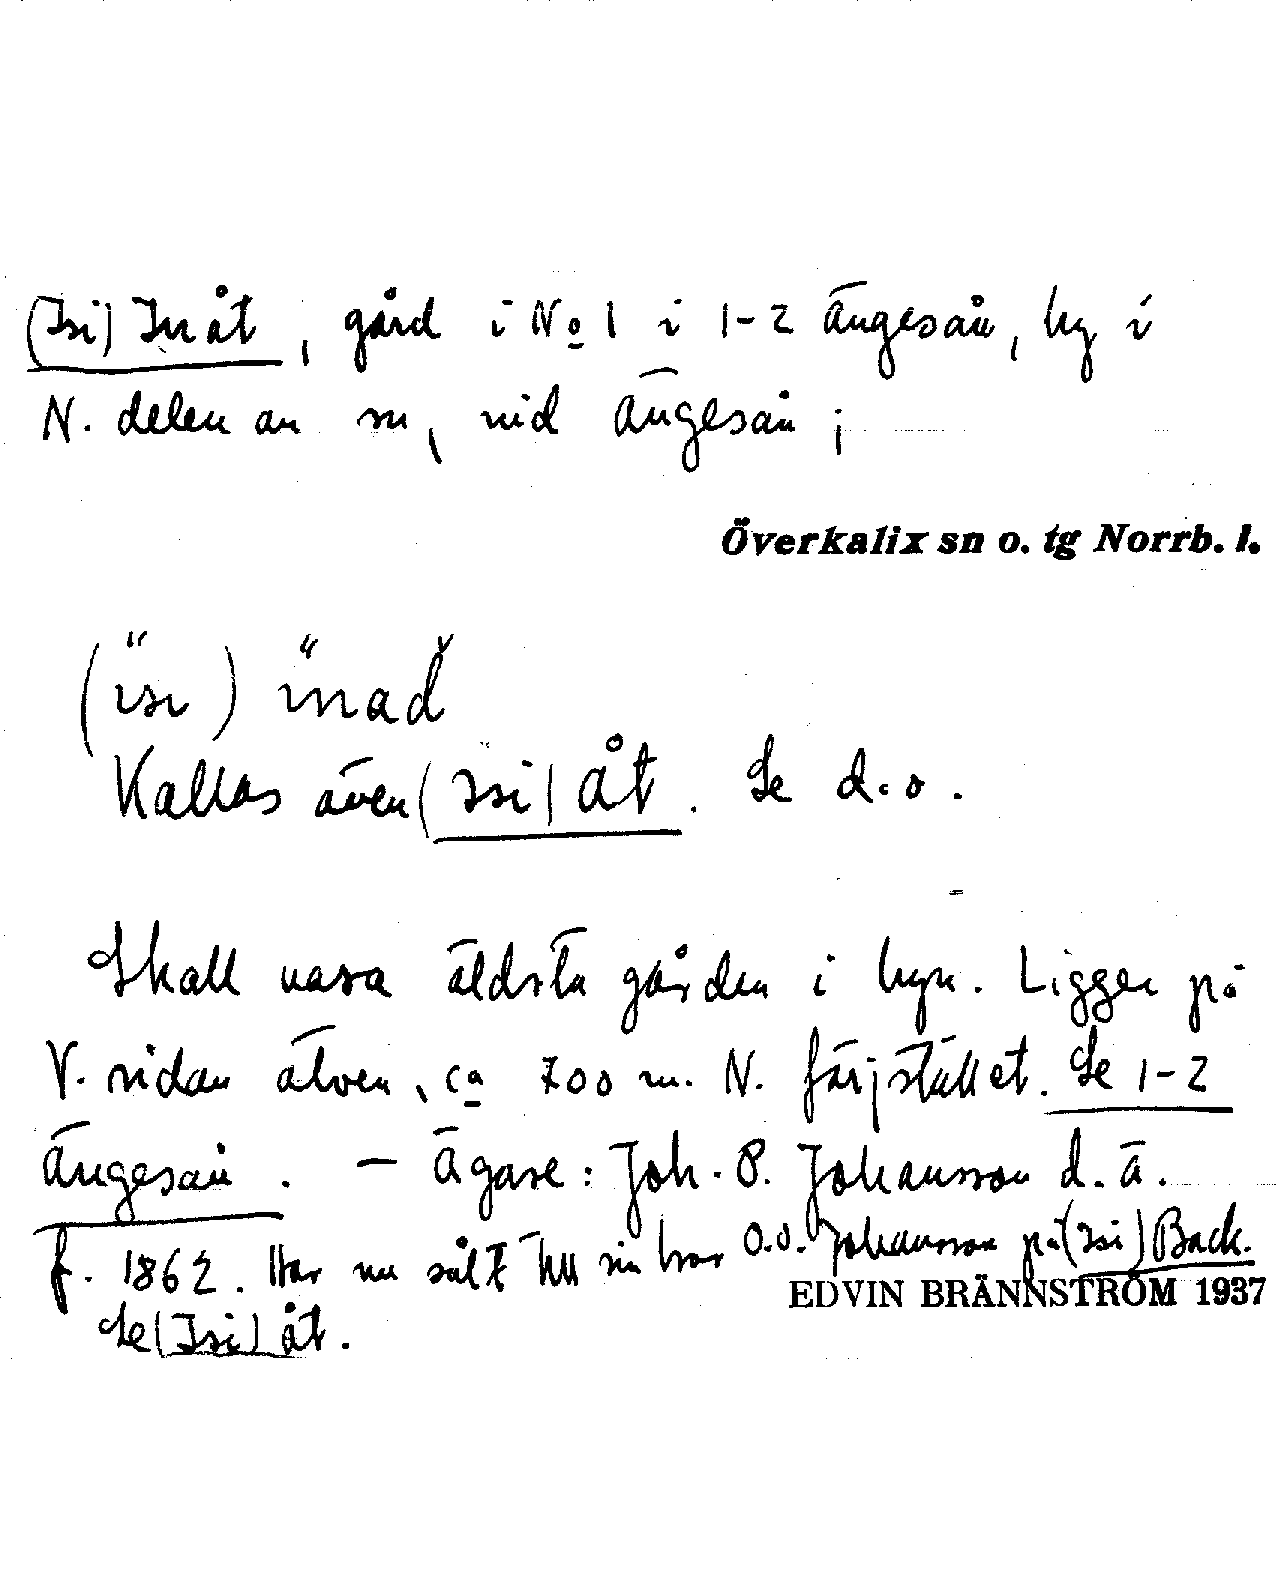 (Isi) Inåt, gård i No 1 i 1-2 Ängesån, by i
N. delen av sn, vid Ängesån;
Överkalix sn o. tg Norrb. l.
(ïsι) ïnad̆
Kallas även (Isi) åt. Se d.o.
Skall vara äldsta gården i byn. Ligger på
V. sidan älven, ca 700 m. N. färjstället. Se 1-2
Ängesån. — Ägare: Joh. P. Johansson d.ä.
f. 1862. Har nu sålt till sin bror O.V. Johansson på (Isi) Back.
EDVIN BRÄNNSTRÖM 1937
Se (Isi) åt.